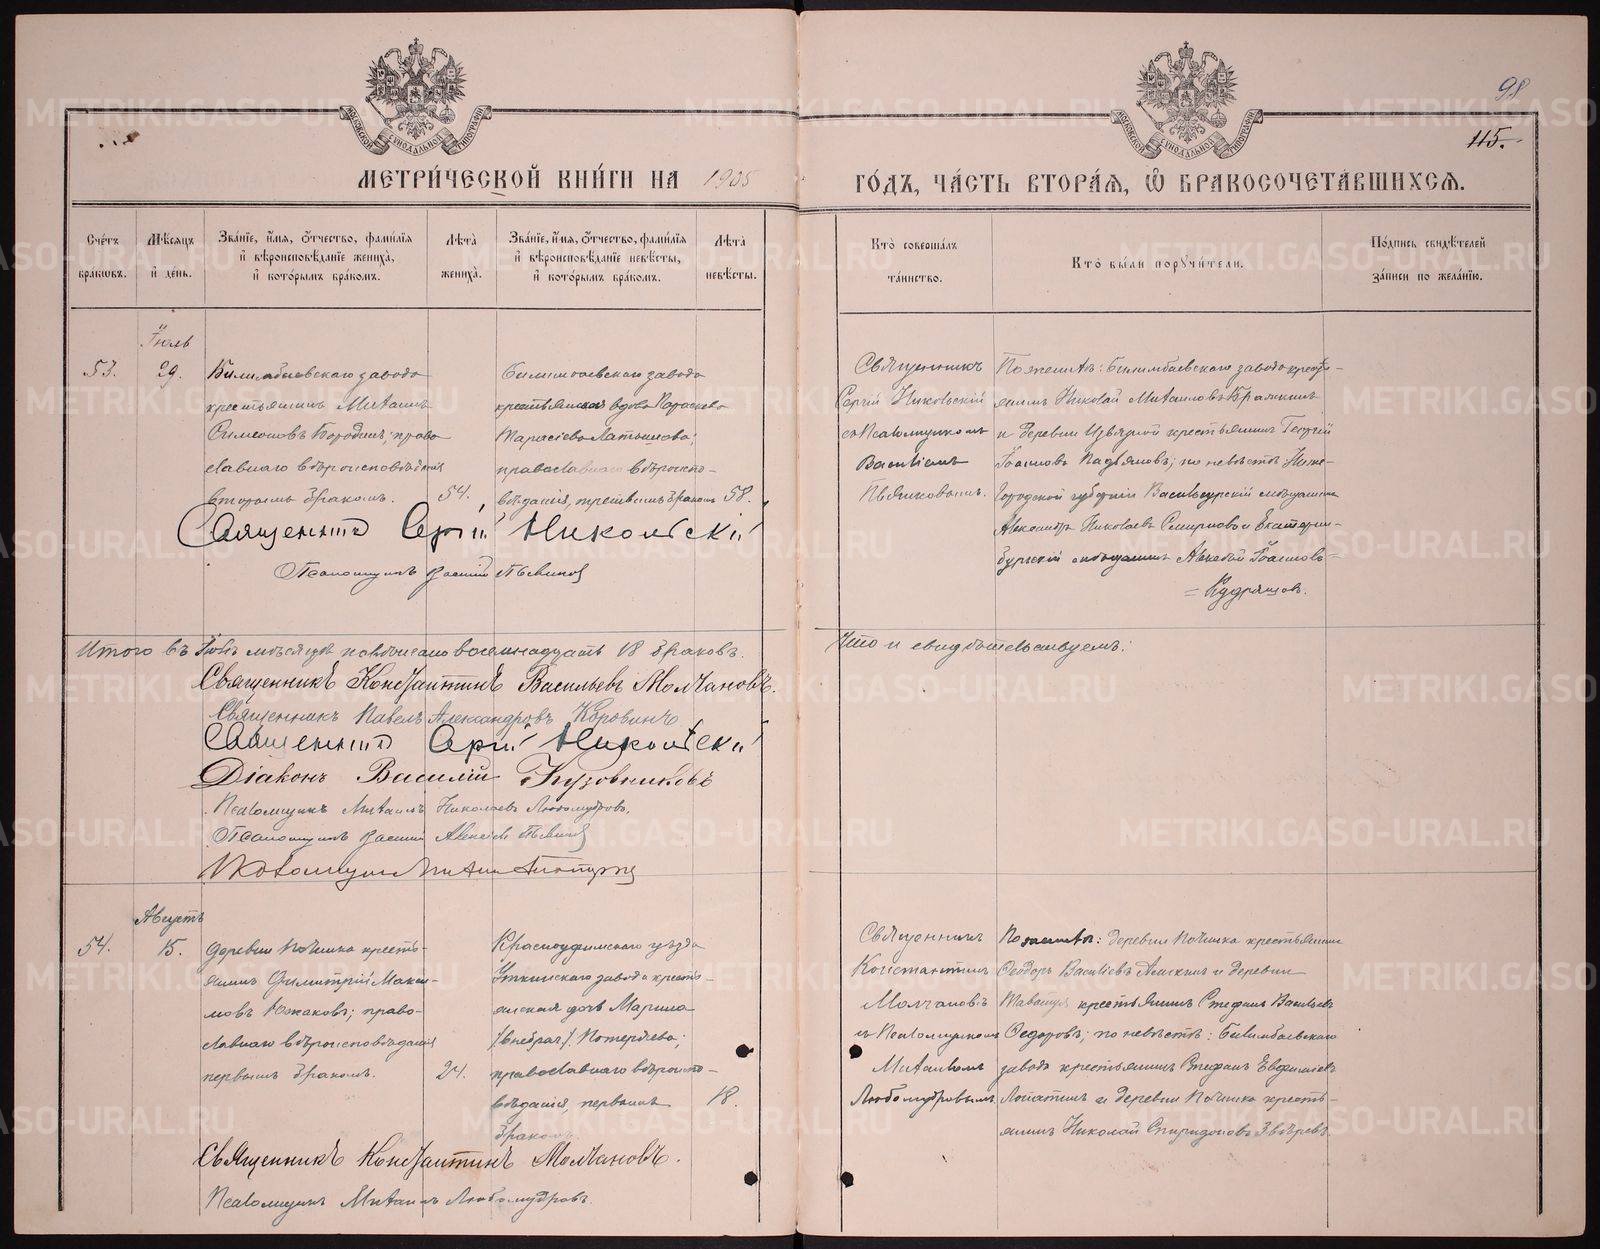 98
115.
МЕТРИ́ЧЕСКОЙ КНИ́ГИ НА 1905
ГО́ДЪ, ЧА́СТЬ ВТОРА́Я, Ѽ БРАКОСОЧЕТА́ВШИХСЯ.
Сче́тъ бра́ковъ.
Мѣ́сяцъ и҆ де́нь.
Зва́нїе, и҆́мя, ѻ҆́тчество, фами́лїя
и҆ вѣроисповѣ́данїе жениха̀,
и҆ кото́рымъ бра́комъ.
Лѣ́та жениха̀.
Зва́нїе, и҆́мя, ѻ҆́тчество, фами́лїя
и҆ вѣроисповѣ́данїе невѣ́сты,
и҆ кото́рымъ бра́комъ.
Лѣ́та невѣ́сты.
Кто̀ соверша́лъ та́инство.
Кто̀ бы́ли порꙋчи́тели.
По́дпись свидѣ́телей за́писи по жела́нїю.
Іюль
53.
29.
Билимбаевскаго завода
крестьянинъ Михаилъ
Симеоновъ Бородинъ; право
славнаго вѣроисповѣданія
вторымъ бракомъ.
54.
Билимбаевскаго завода
крестьянская вдова Параскева
Тарасіева Латышова;
православнаго вѣроиспо-
вѣданія, третьимъ бракомъ
58.
Священникъ
Сергій Никольскій
съ Псаломщикомъ
Василіемъ
Пьянковымъ.
По женихѣ: Билимбаевскаго завода кресть-
янинъ Николай Михаиловъ
и деревни крестьянинъ Георгій
Іоанновъ по невѣстѣ Ниже-
городской губерніи Васильсурскій мѣщанинъ
Александръ Николаевъ Смирновъ и Екатерин-
бургскій мѣщанинъ Алексѣй Іоанновъ
= Кудряшовъ.
Священникъ Сергій Никольскій
Псаломщикъ Василій
Итого въ Іюлѣ мѣсяцѣ повѣнчано восемнадцать 18 браковъ.
Что и свидѣтельствуемъ:
Священникъ Константинъ Васильевъ Молчановъ.
Священникъ Павелъ Александровъ Коровинъ
Священникъ Сергій Никольскій
Діаконъ Василій Кузовниковъ
Псаломщикъ Михаилъ Николаевъ Любомудровъ.
Псаломщикъ Василій Алексѣевъ
Псаломщикъ
Августъ
54.
15.
деревни Починка кресть-
янинъ Димитрій Макси-
мовъ Южаковъ; право-
славнаго вѣроисповѣданія
первымъ бракомъ.
24.
Красноуфимскаго уѣзда
Уткинскаго завода кресть-
янская дочь Марина
/внебрач/. Потеряева;
православнаго вѣроиспо-
вѣданія, первымъ
бракомъ.
18.
Священникъ
Константинъ
Молчановъ
и Псаломщикъ
Михаилъ
Любомудровымъ
По женихѣ: деревни Починка крестьянинъ
Ѳеодоръ Василіевъ и деревни
крестьянинъ Стефанъ Васильевъ
Ѳедоровъ; по невѣстѣ: Билимбаевскаго
завода крестьянинъ Стефанъ Евфиміевъ
Лопатинъ и деревни Починка кресть-
янинъ Николай Спиридоновъ Звѣревъ.
Священникъ Константинъ Молчановъ.
Псаломщикъ Михаилъ Любомудровъ.
METRIKI.GASO-URAL.RU